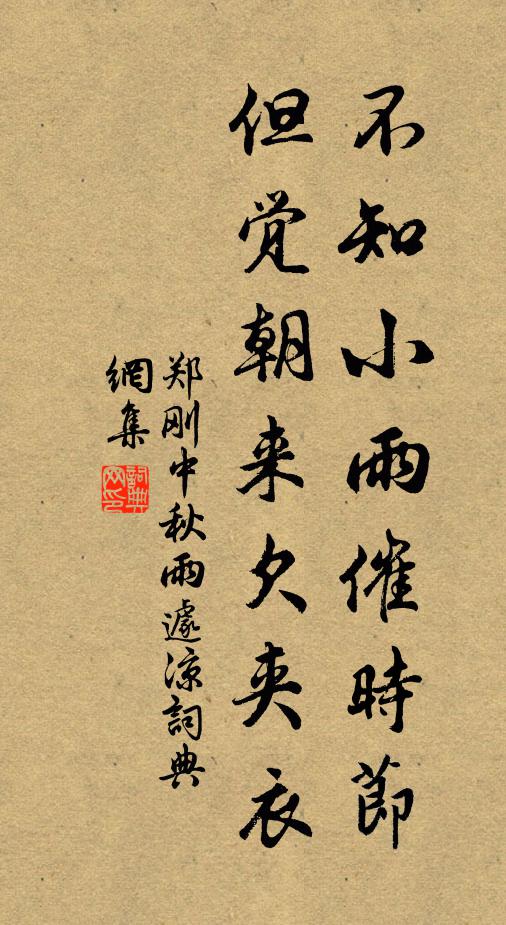 不知小雨催時節
但觉朝来欠夹衣
郑刚中秋雨遽凉詞典
網集
詞典網印